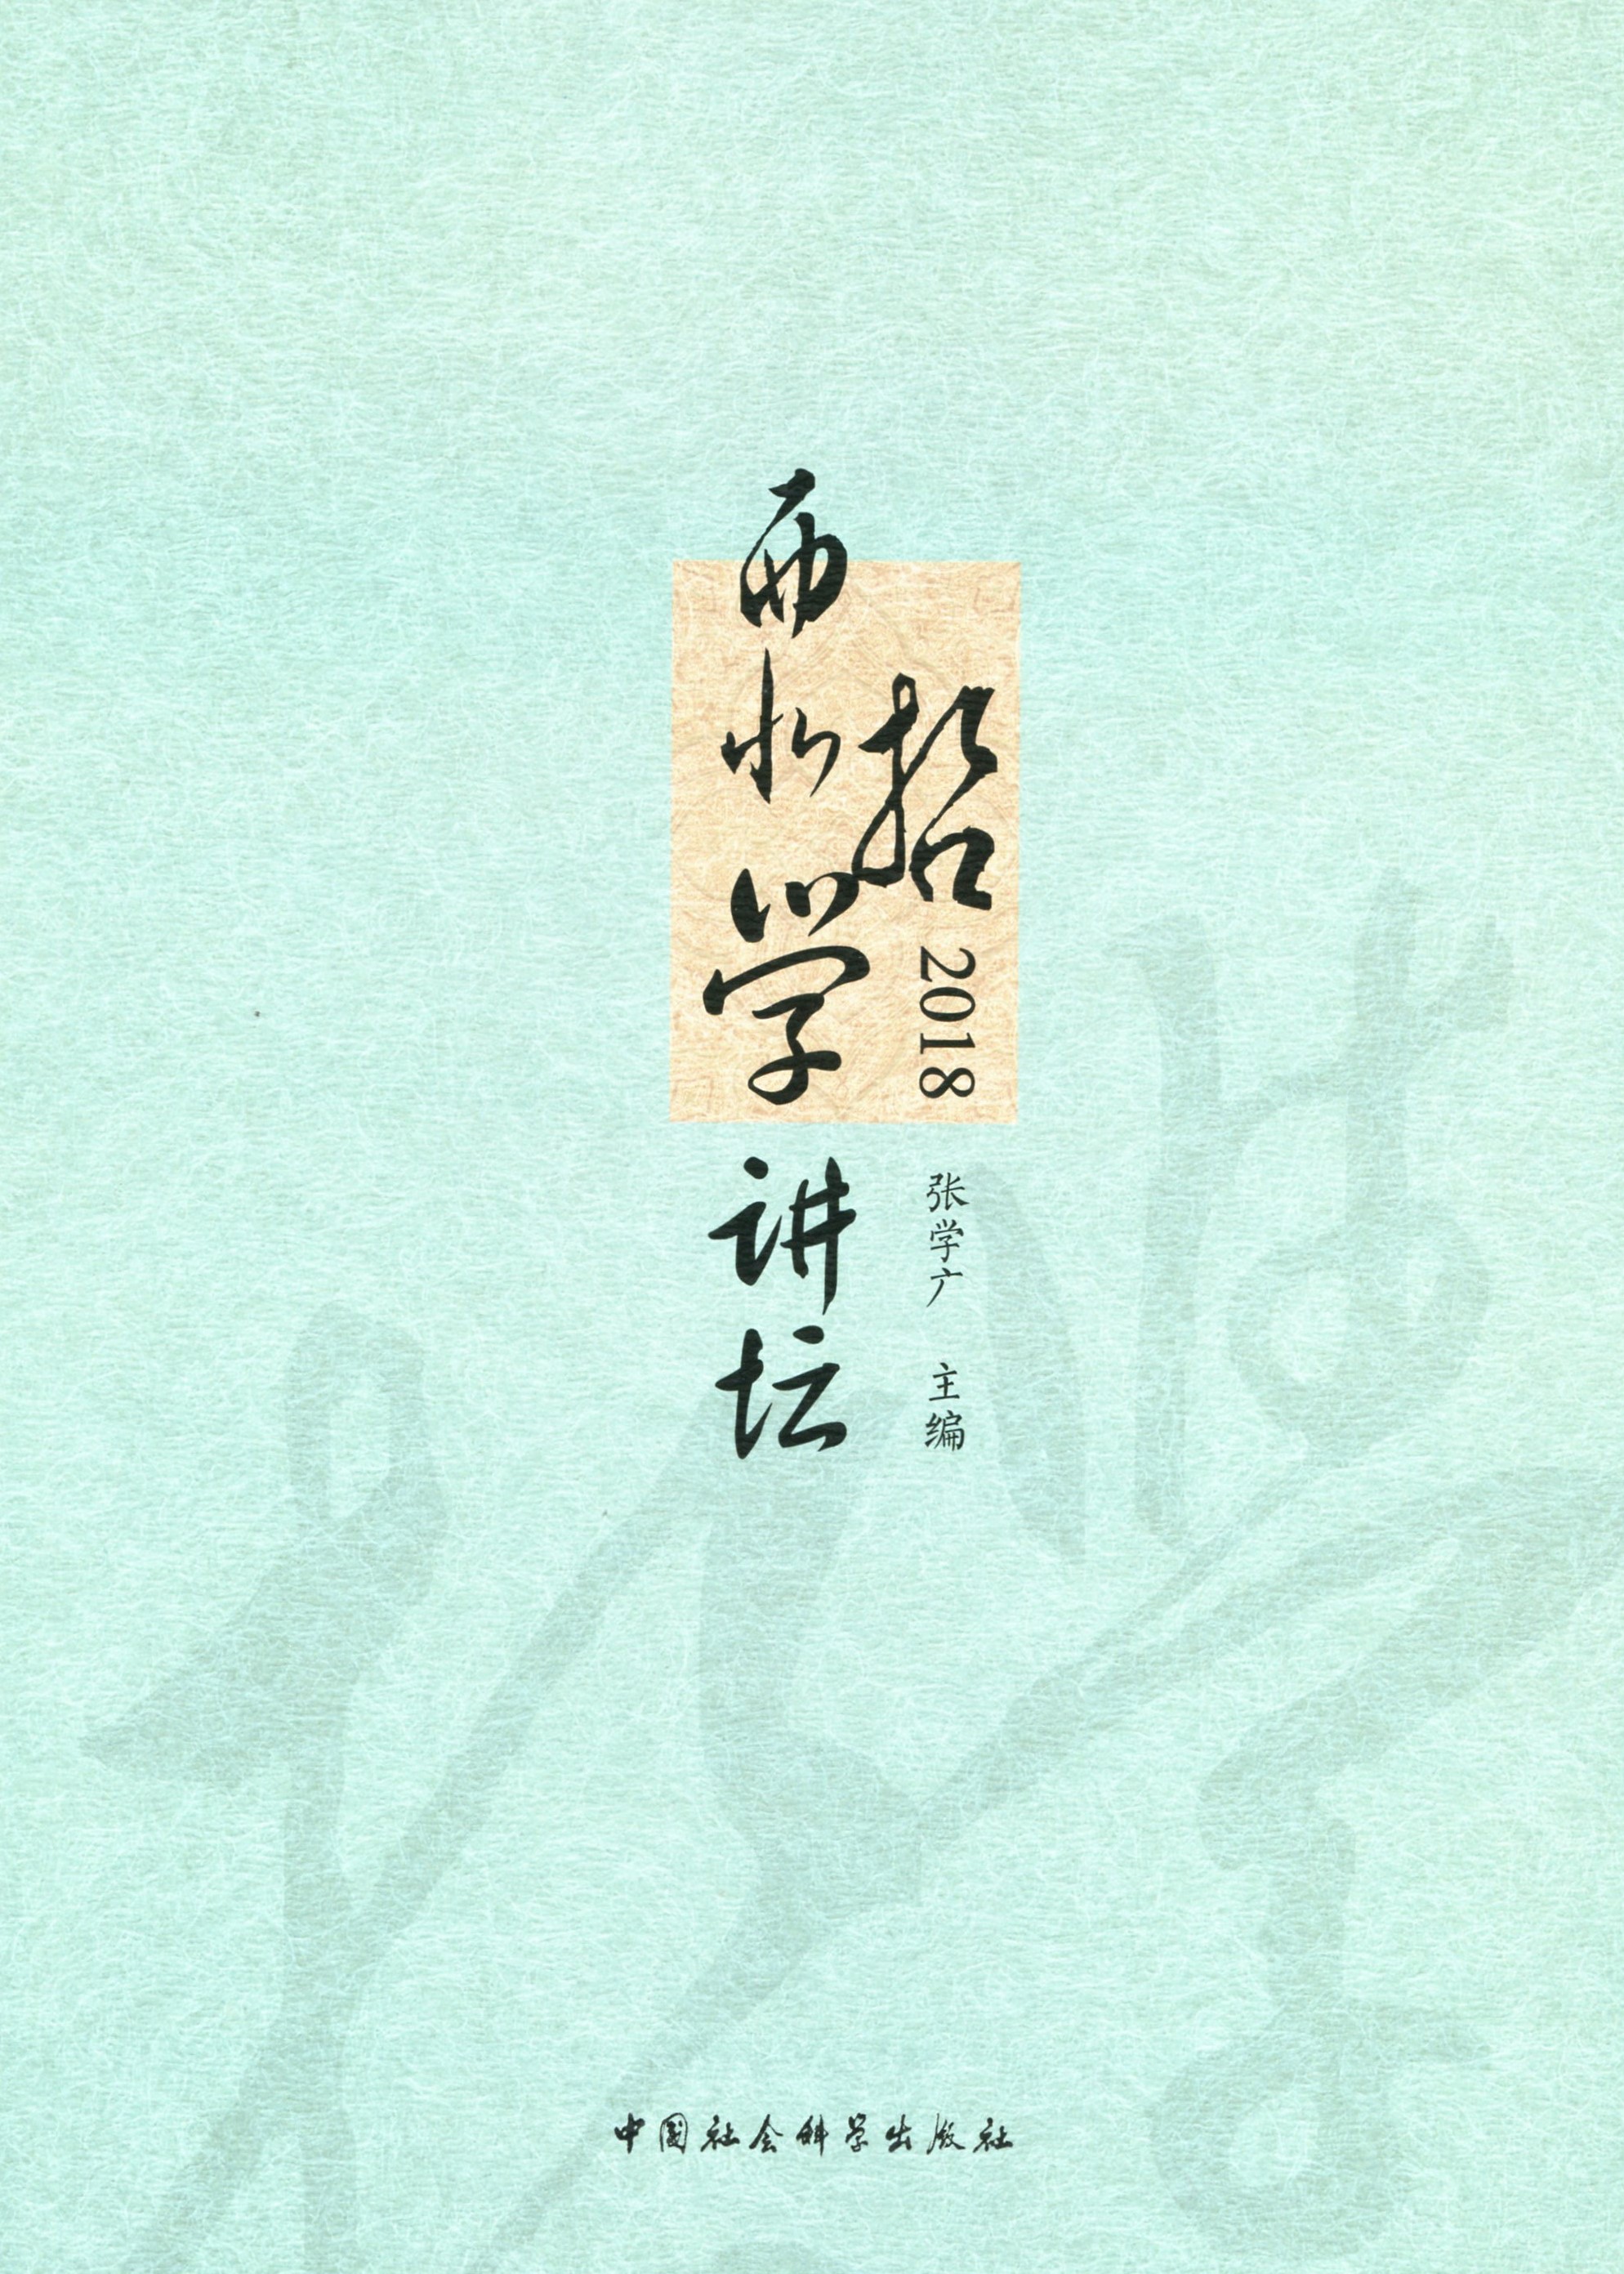 西北哲学
讲坛
2018
张学广 主编
中国社会科学出版社